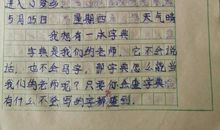 5月25日 星期四 天气晴
我想有一本字典
字典是我们的老师，它不会说
话，也不会写字，那字典怎么能当
我们的老师呢？只要你会查字典
有什么不会写的字都查到。